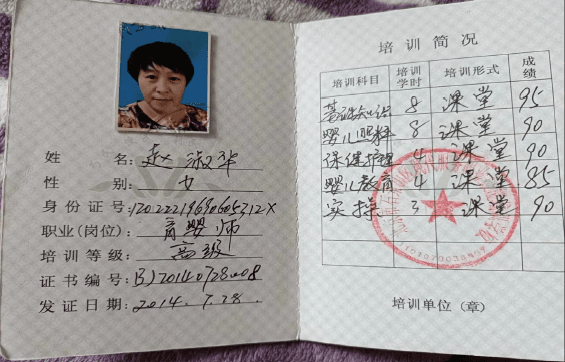 姓名:赵淑华
性别:女
身份证号:12022219690605312X
职业(岗位):育婴师
培训等级:高级
证书编号:BJ20140728008
发证日期:2014.7.28.
培训简况
培训科目 培训学时 培训形式 成绩
基础知识 8 课堂 95
婴儿照料 8 课堂 90
保健护理 4 课堂 90
婴儿教育 4 课堂 85
实操 3 课堂 90
培训单位(章)